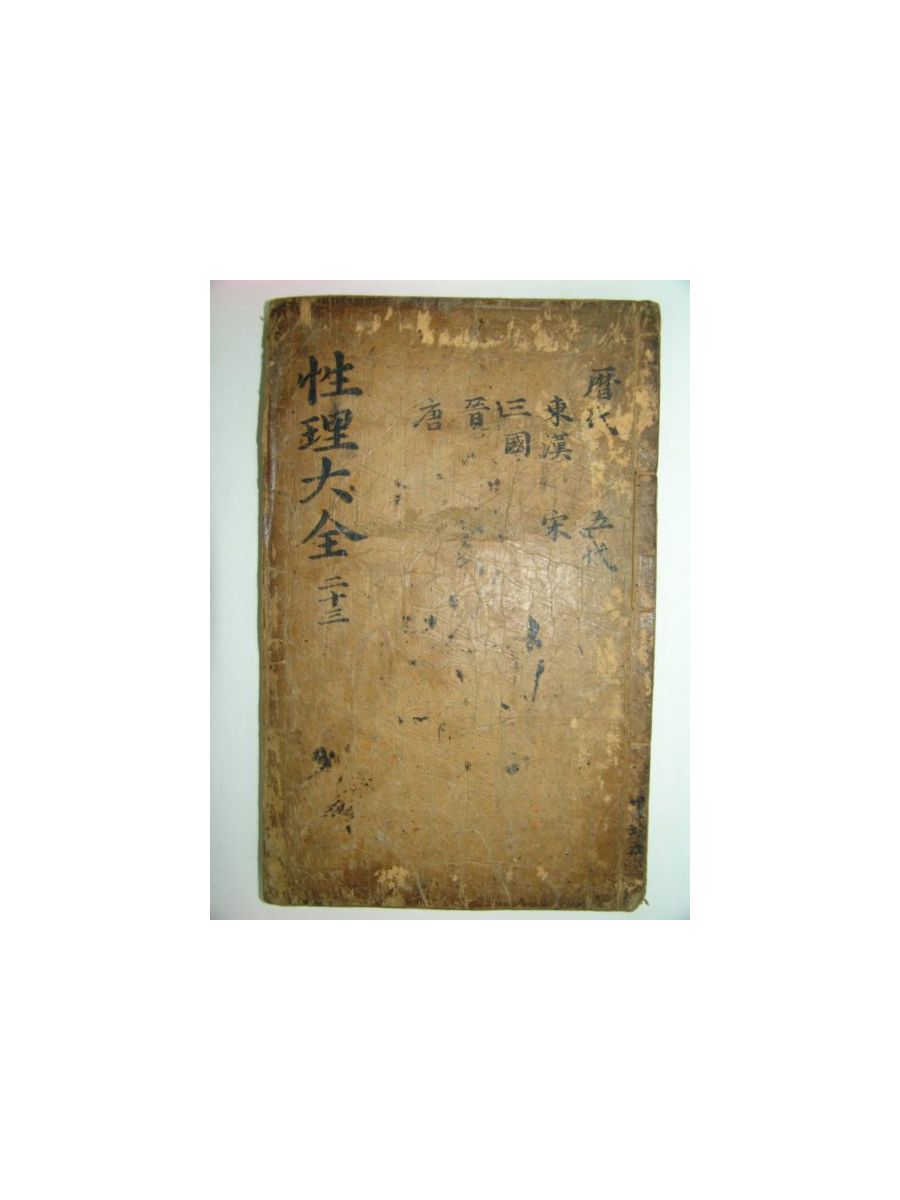 曆代 五代
東漢 宋
三國
晉
唐
性理大全 二十三